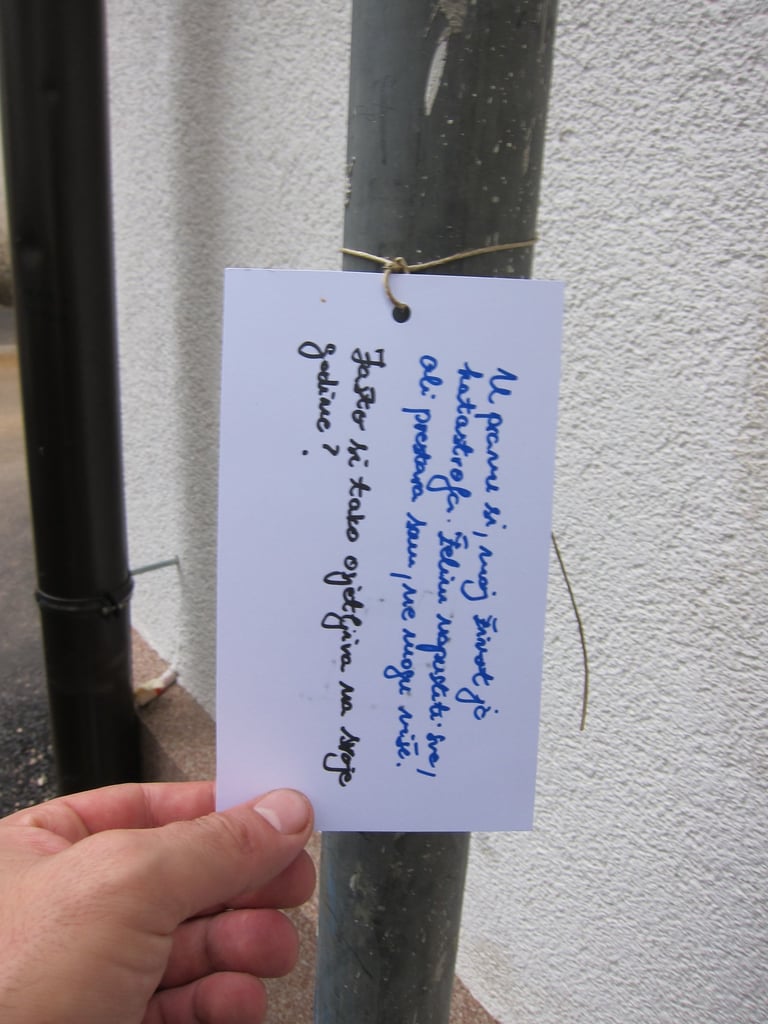 U pravu si, moj život je
katastrofa. Želim napustiti sve,
ali prestara sam, ne mogu više.
Zašto si tako osjetljiva na svoje
godine?